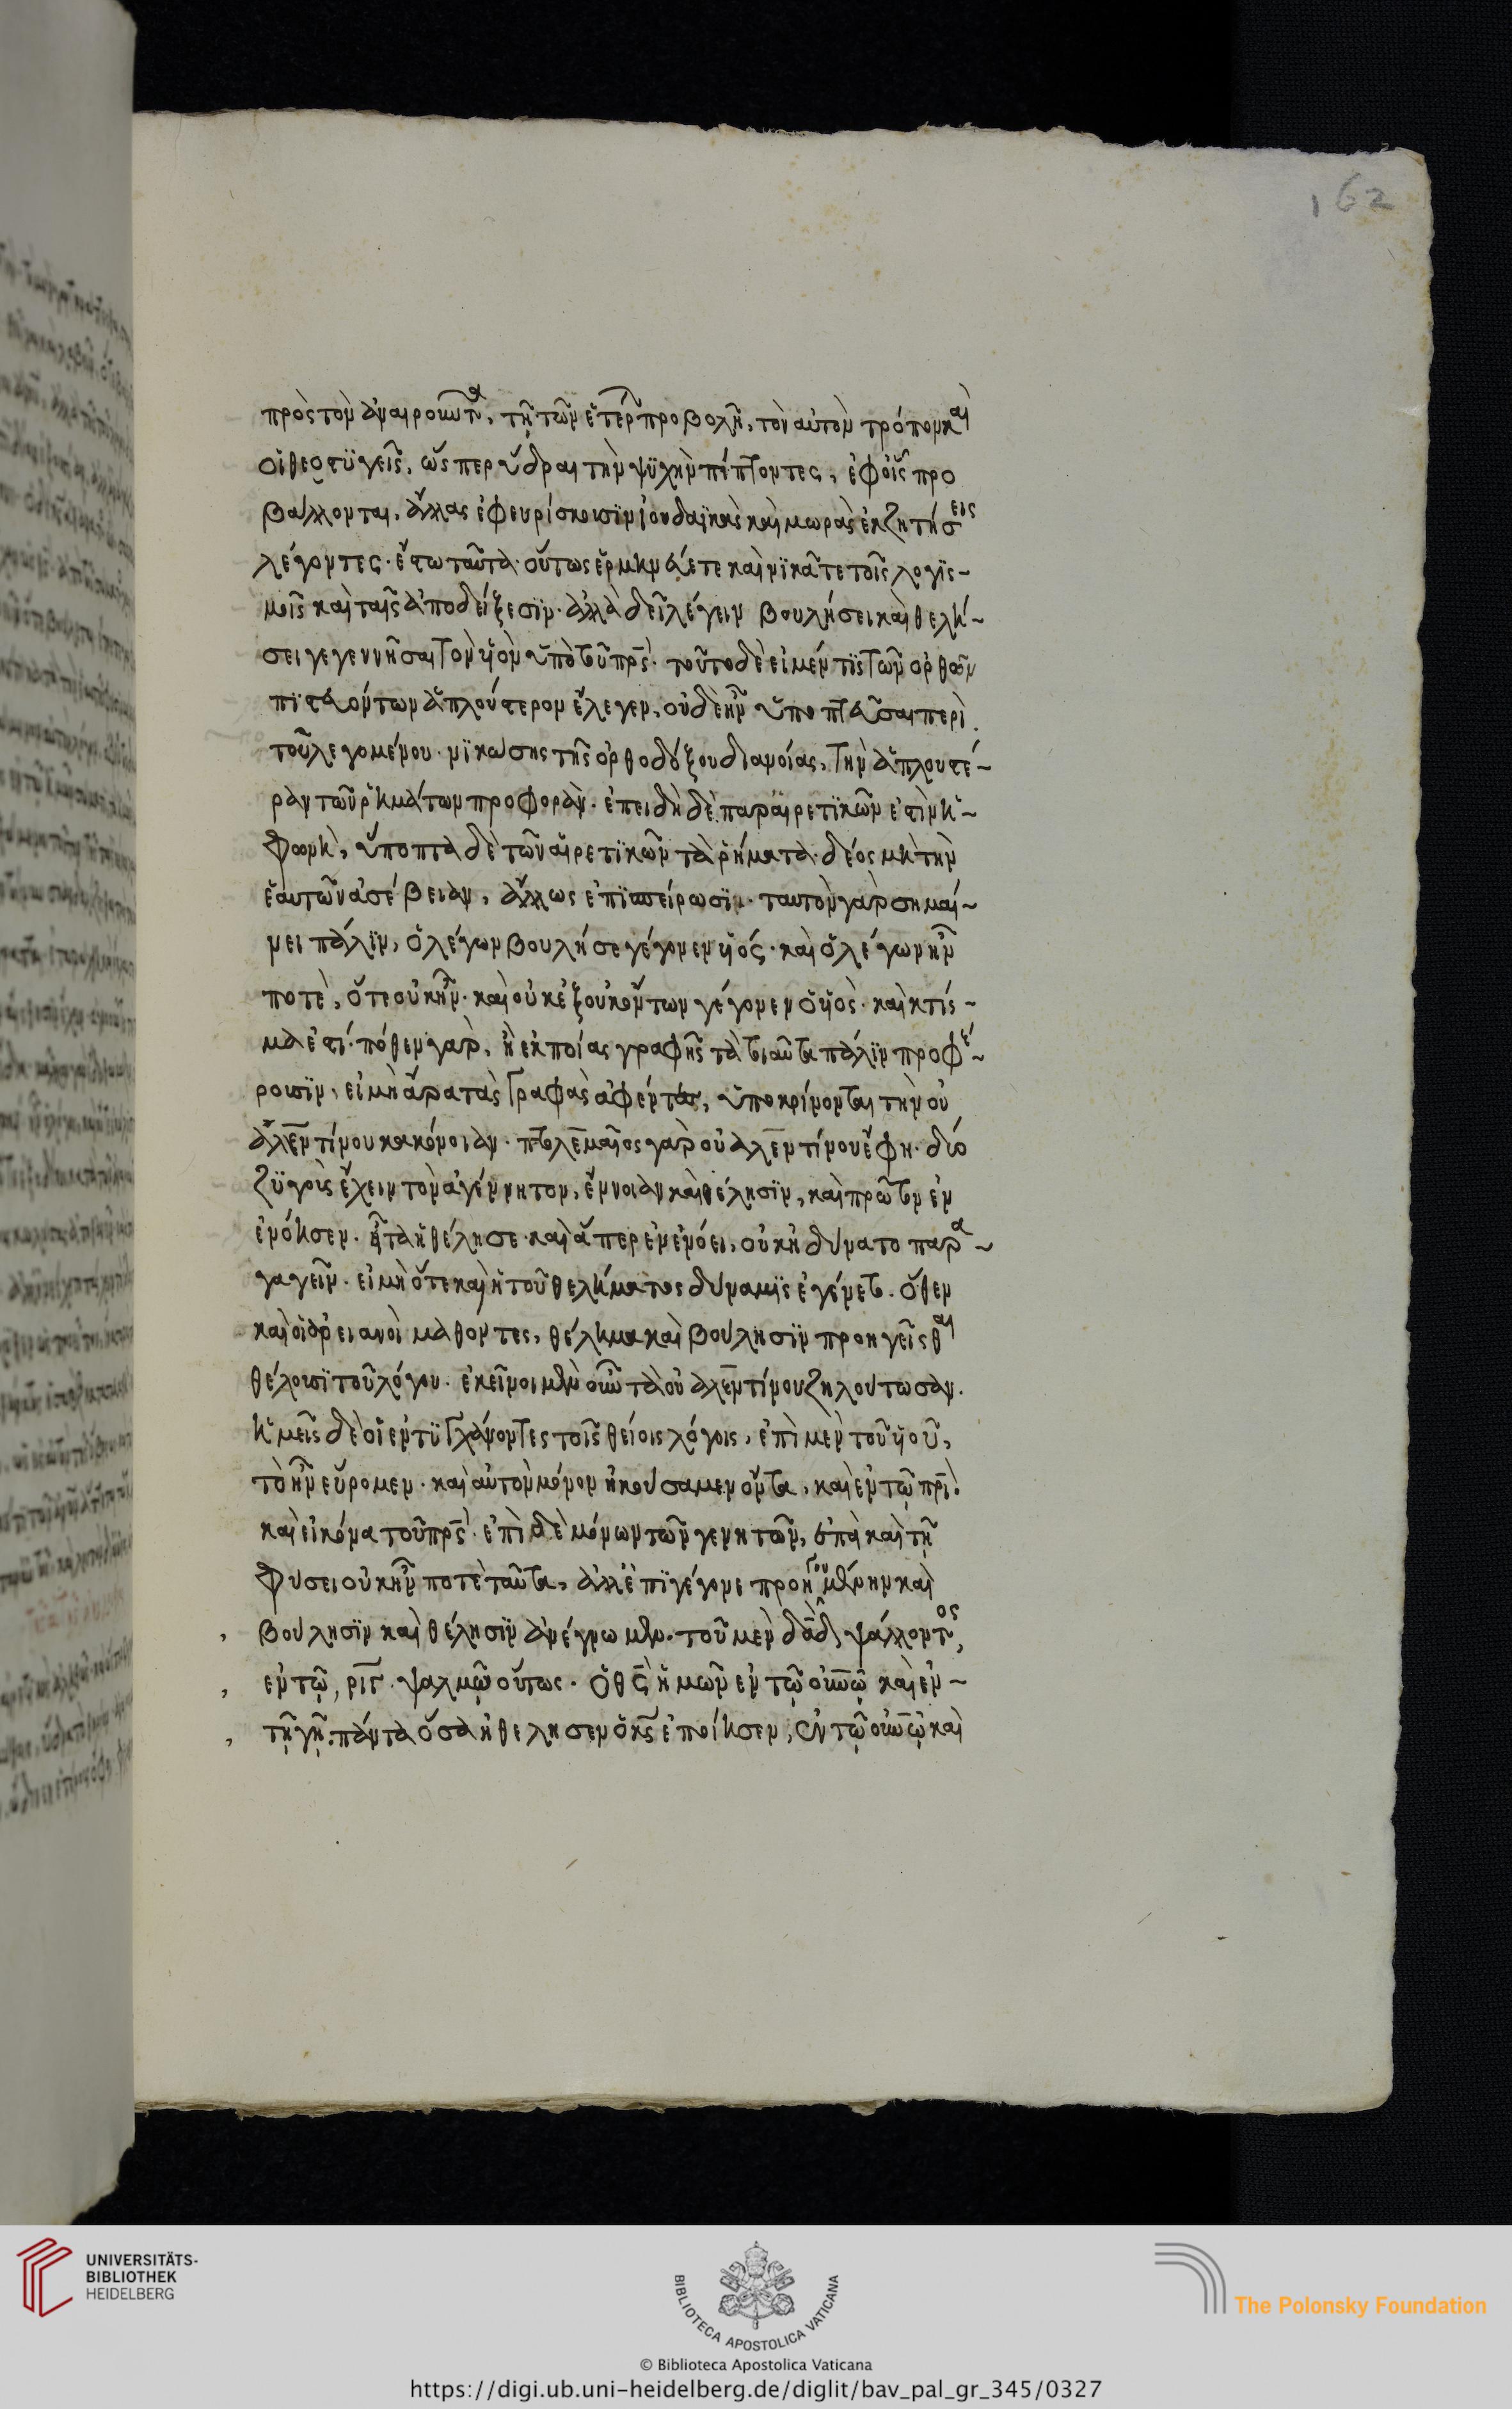 162
πρὸς τὸν ἀναιροῦντα, τῇ τῶν ἑτέρων προβολῇ, τὸν αὐτὸν τρόπον καὶ
οἱ θεοστυγεῖς, ὥσπερ ὕδραι τὴν ψυχὴν πίπτοντες, ἐφ' οἷς προ
βάλλονται, ἄλλας ἐφευρίσκουσιν ἰουδαϊκὰς καὶ μωρὰς ἐκζητήσεις
λέγοντες· ἔστω ταῦτα· οὕτως ἑρμηνεύετε καὶ νικᾶτε τοῖς λογισ-
μοῖς καὶ ταῖς ἀποδείξεσιν· ἀλλὰ δεῖ λέγειν βουλήσει καὶ θελή-
σει γεγεννῆσαι τὸν υἱὸν ὑπὸ τοῦ πρς· τοῦτο δὲ εἰ μέν τις τῶν ὀρθῶν
πιστευόντων ἁπλούστερον ἔλεγεν, οὐδὲν ἦν ὑποπτεῦσαι περὶ
τοῦ λεγομένου· νικώσης τῆς ὀρθοδόξου διανοίας, τὴν ἁπλουστέ-
ραν τῶν ῥημάτων προφοράν· ἐπειδὴ δὲ παρ' αἱρετικῶν ἐστὶν ἡ
φωνὴ, ὕποπτα δὲ τῶν αἱρετικῶν τὰ ῥήματα· δέος μὴ τὴν
ἑαυτῶν ἀσέβειαν, ἄλλως ἐπισπείρωσιν· ταυτὸν γὰρ σημαί-
νει πάλιν, ὁ λέγων βουλήσει γέγονεν υἱός· καὶ ὁ λέγων ἦν
ποτὲ, ὅτε οὐκ ἦν· καὶ οὐκ ἐξ οὐκ ὄντων γέγονεν ὁ υἱὸς· καὶ κτίσ-
μα ἐστί· πόθεν γὰρ, ἢ ἐκ ποίας γραφῆς τὰ τοιαῦτα πάλιν προφέ-
ρουσιν, εἰ μὴ ἄρα τὰς γραφὰς ἀφέντας, ὑποκρίνονται τὴν οὐ
ἀλεντίνου κακόνοιαν· πτολεμαῖος γὰρ ὁ οὐαλεντίνου ἔφη· δύο
ζυγοὺς ἔχειν τὸν ἀγέννητον, ἔννοιαν καὶ θέλησιν, καὶ πρῶτον ἐν
ἐνόησεν· εἶτα ἠθέλησε· καὶ ἅπερ ἐνενόει, οὐκ ἠδύνατο παρα-
γαγεῖν· εἰ μὴ ὅτε καὶ ἡ τοῦ θελήματος δύναμις ἐγένετο· ὅθεν
καὶ οἱ ἀρειανοὶ μαθόντες, θέλημα καὶ βούλησιν προηγεῖσθαι
θέλουσι τοῦ λόγου· ἐκεῖνοι μὲν οὖν τὰ οὐαλεντίνου ζηλούτωσαν·
ἡμεῖς δὲ οἱ ἐντυγχάνοντες τοῖς θείοις λόγοις, ἐπὶ μὲν τοῦ υἱοῦ,
τὸ ἦν εὕρομεν· καὶ αὐτὸν μόνον ἠκούσαμεν ὄντα, καὶ ἐν τῷ πρι·
καὶ εἰκόνα τοῦ πρς· ἐπὶ δὲ μόνων τῶν γενητῶν, ἐπεὶ καὶ τῇ
φύσει οὐκ ἦν ποτὲ ταῦτα, ἀλλ' ἐπιγέγονε προηγουμένην καὶ
βούλησιν καὶ θέλησιν ἀνέγνωμεν· τοῦ μὲν δαδ ψάλλοντος,
ἐν τῷ, ριγ· ψαλμῷ οὕτως· ὁ θς ἡμῶν ἐν τῷ οὐνῷ καὶ ἐν-
τῇ γῇ· πάντα ὅσα ἠθέλησεν ὁ κς ἐποίησεν, ἐν τῷ οὐνῷ καὶ
UNIVERSITÄTS-
BIBLIOTHEK
HEIDELBERG
BIBLIOTECA APOSTOLICA VATICANA
The Polonsky Foundation
© Biblioteca Apostolica Vaticana
https://digi.ub.uni-heidelberg.de/diglit/bav_pal_gr_345/0327